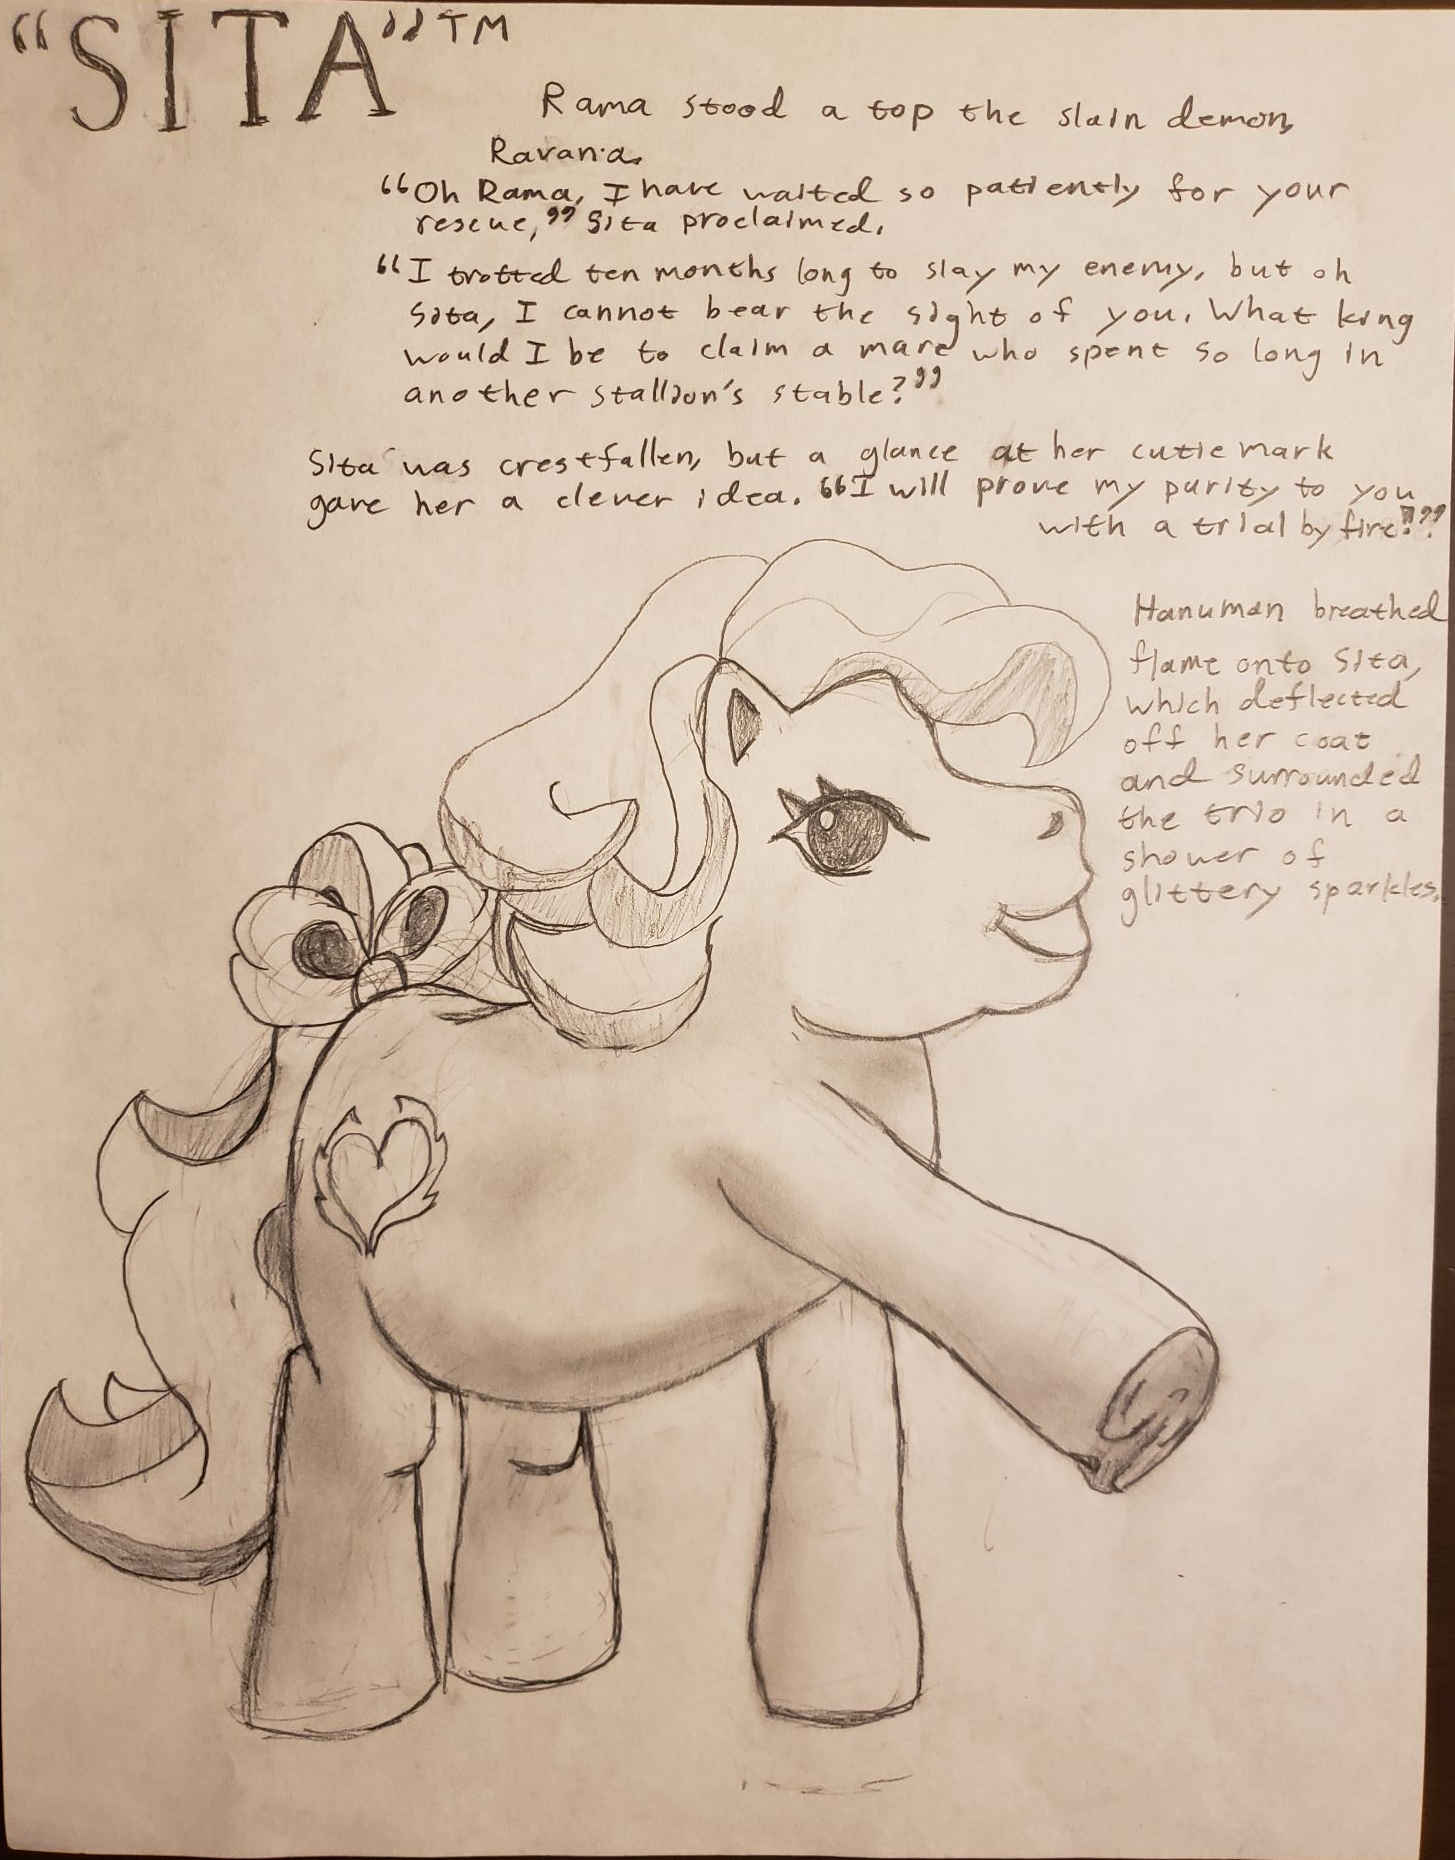 “SITA”TM
Rama stood a top the slain demon,
Ravana.
“Oh Rama, I have waited so patiently for your
rescue,” Sita proclaimed.
“I trotted ten months long to slay my enemy, but oh
Sita, I cannot bear the sight of you. What king
would I be to claim a mare who spent so long in
another stallion's stable?”
Sita was crestfallen, but a glance at her cutie mark
gave her a clever idea. “I will prove my purity to you
with a trial by fire!”
Hanuman breathed
flame onto Sita,
which deflected
off her coat
and surrounded
the trio in a
shower of
glittery sparkles.